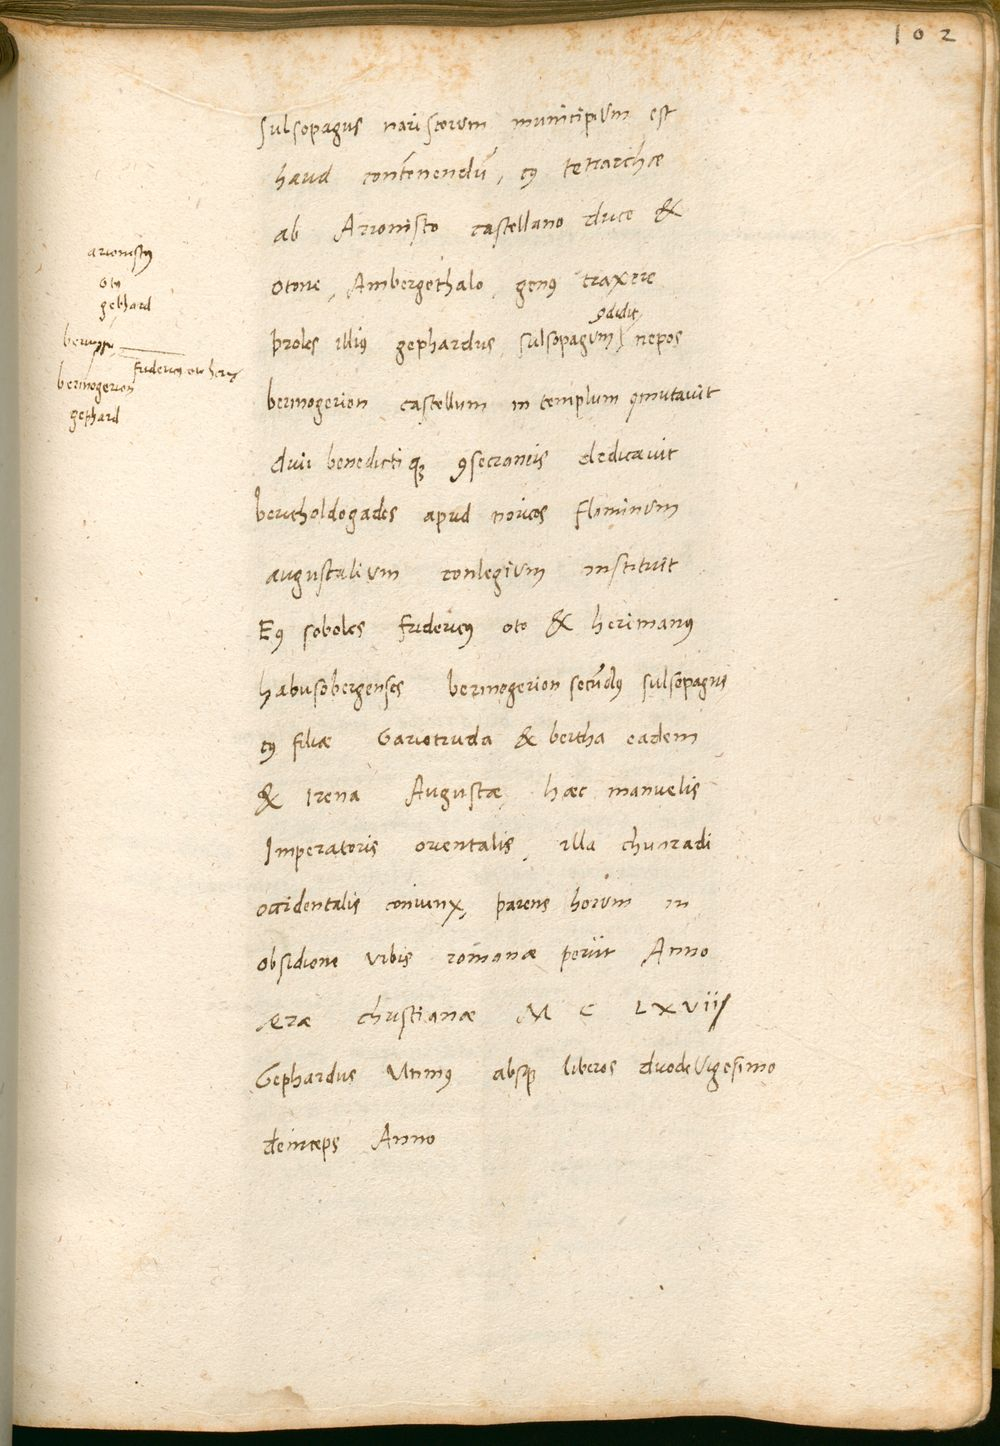 102
sulsopagus nariscorum municipium est
haud contēnendū, cꝰ tetrarchæ
ab Arionisto castellano duce &
otone, Ambergethalo, genꝰ traxere
ꝯdidit,
proles illiꝰ gephardus, sulsopagum nepos
bermogerion castellum in templum ꝯmutavit
benedictiqꝫ ꝯsecraneis dedicavit
bertholdogades apud noricos flaminum
augustalium conlegium instituit
Eꝰ soboles fridericꝰ oto & herimanꝰ
habusobergenses bermogerion secūdꝰ sulsopagus
cꝰ filiæ Gariotruda & bertha eadem
& Irena Augustæ, hæc manuelis
Imperatoris orientalis, illa chunradi
occidentalis coniunx, parens horum in
obsidione urbis romanæ periit Anno
æræ christianæ M C LXVII
Gephardus Utimꝰ absqꝫ liberos duodeVigesimo
deinceps Anno
arionistꝰ
oto
gebhard
fridericꝰ oto
bermogerion
gephard